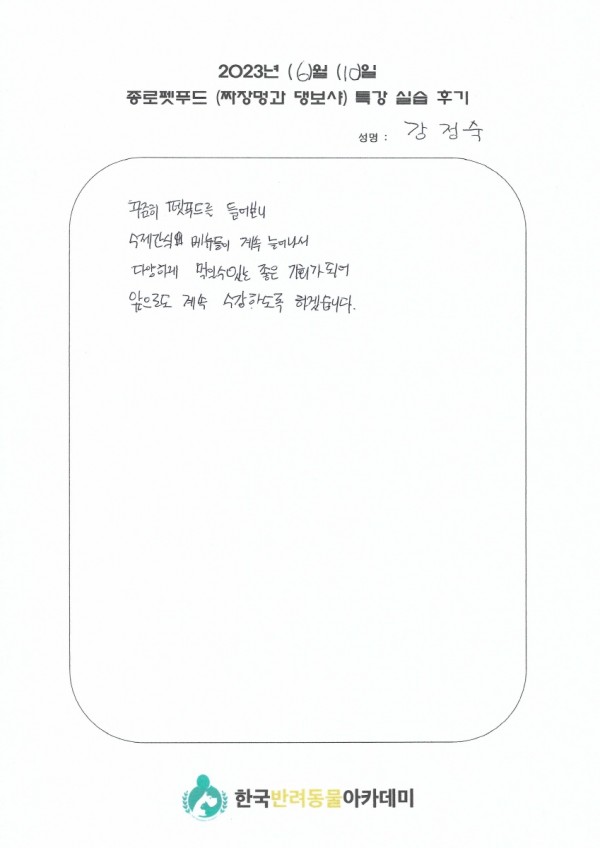 2023년 (6)월 (10)일
종로펫푸드 (짜장멍과 댕보샤) 특강 실습 후기
성명 : 강정숙
꾸준히 펫푸드를 들어보니
수제간식의 메뉴들이 계속 늘어나서
다양하게 먹일수있는 좋은 기회가되어
앞으로도 계속 수강하도록 하겠습니다.
한국반려동물아카데미